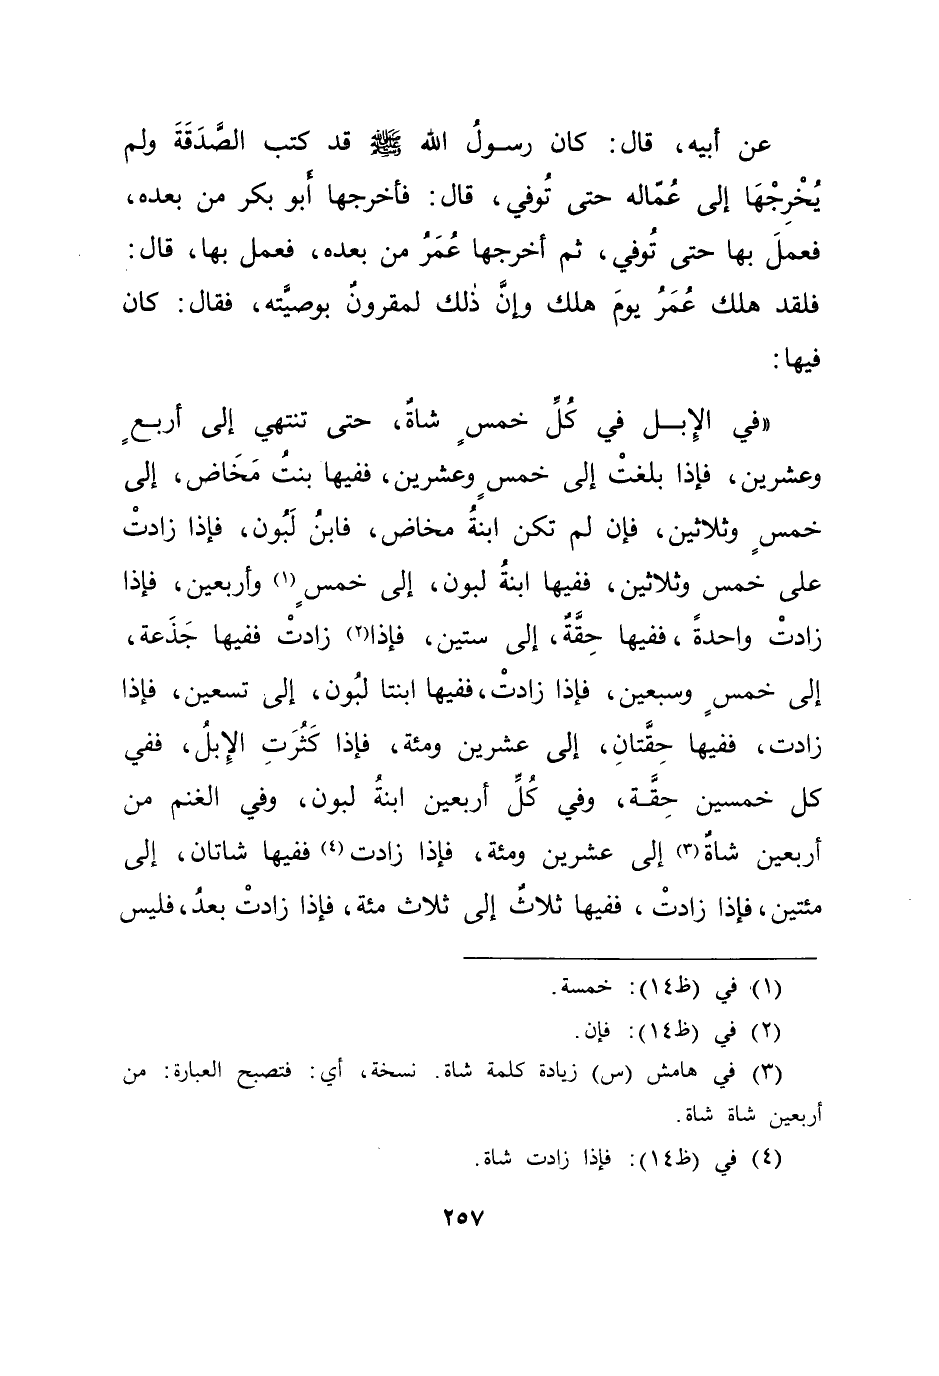 عن أبيه، قال: كان رسـولُ الله ﷺ قد كتب الصَّدَقَةَ ولم
يُخْرِجْهَا إلى عُمّاله حتى تُوفي، قال: فأخرجها أَبو بكر من بعده،
فعملَ بها حتى تُوفي، ثم أخرجها عُمَرُ من بعده، فعمل بها، قال:
فلقد هلك عُمَرُ يومَ هلك وإنَّ ذٰلك لمقرونٌ بوصيَّته، فقال: كان
فيها:
«في الإِبـل في كُلِّ خمسٍ شاةٌ، حتى تنتهي إلى أربـعٍ
وعشرين، فإذا بلغتْ إلى خمسٍ وعشرين، ففيها بنتُ مَخَاض، إلى
خمسٍ وثلاثين، فإن لم تكن ابنةُ مخاض، فابنُ لَبُون، فإذا زادتْ
على خمس وثلاثين، ففيها ابنةُ لبون، إلى خمسٍ(١) وأربعين، فإذا
زادتْ واحدةً، ففيها حِقَّةٌ، إلى ستين، فإذا(٢) زادتْ ففيها جَذَعة،
إلى خمسٍ وسبعين، فإذا زادتْ، ففيها ابنتا لبُون، إلى تسعين، فإذا
زادت، ففيها حِقَّتانِ، إلى عشرين ومئة، فإذا كَثُرَتِ الإِبلُ، ففي
كل خمسين حِقَّـة، وفي كُلِّ أربعين ابنةُ لبون، وفي الغنم من
أربعين شاةٌ(٣) إلى عشرين ومئة، فإذا زادت(٤) ففيها شاتان، إلى
مئتين، فإذا زادتْ، ففيها ثلاثٌ إلى ثلاث مئة، فإذا زادتْ بعدُ، فليس
(١) في (ظ١٤): خمسة.
(٢) في (ظ١٤): فإن.
(٣) في هامش (س) زيادة كلمة شاة. نسخة، أي: فتصبح العبارة: من
أربعين شاة شاة.
(٤) في (ظ١٤): فإذا زادت شاة.
٢٥٧